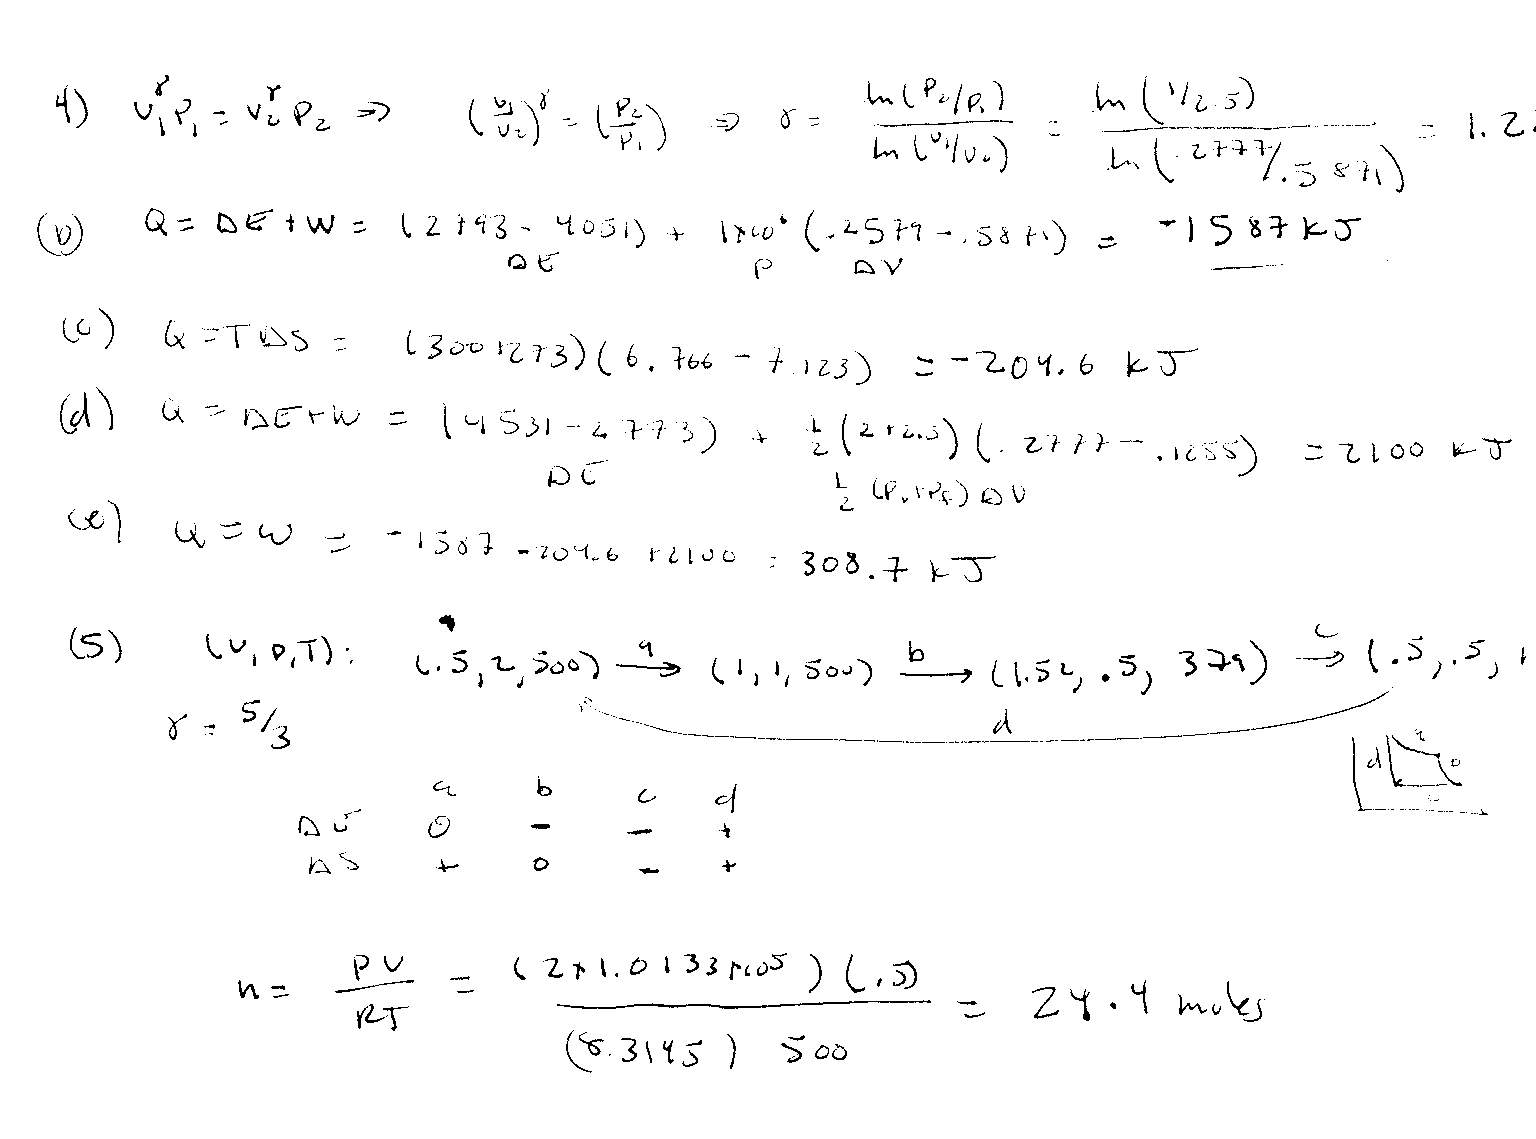 4) V₁^γ P₁ = V₂^γ P₂ ⇒ (V₁/V₂)^γ = (P₂/P₁) ⇒ γ = ln(P₂/P₁) / ln(V₁/V₂) = ln(1/2.5) / ln(.2777/.5871) = 1.2
(b) Q = ΔE + W = (2793 - 4051) + 1×10⁶ (.2579 - .5871) = -1587 kJ
ΔE P ΔV
(c) Q = TΔS = (300+273)(6.766 - 7.123) = -204.6 kJ
(d) Q = ΔE+W = (4531-2773) + ½(2+2.5)(.2777-.1255) = 2100 kJ
ΔE ½(P₁+P_f)ΔV
(e) Q = W = -1587 -204.6 +2100 = 308.7 kJ
(5) (V,P,T): (.5,2,500) a→ (1,1,500) b→ (1.52,.5,379) c→ (.5,.5,
γ = 5/3 d
a
d b
c
a b c d
ΔE 0 - - +
ΔS + 0 - +
n = PV / RT = (2×1.0133×10⁵)(.5) / (8.3145) 500 = 24.4 moles